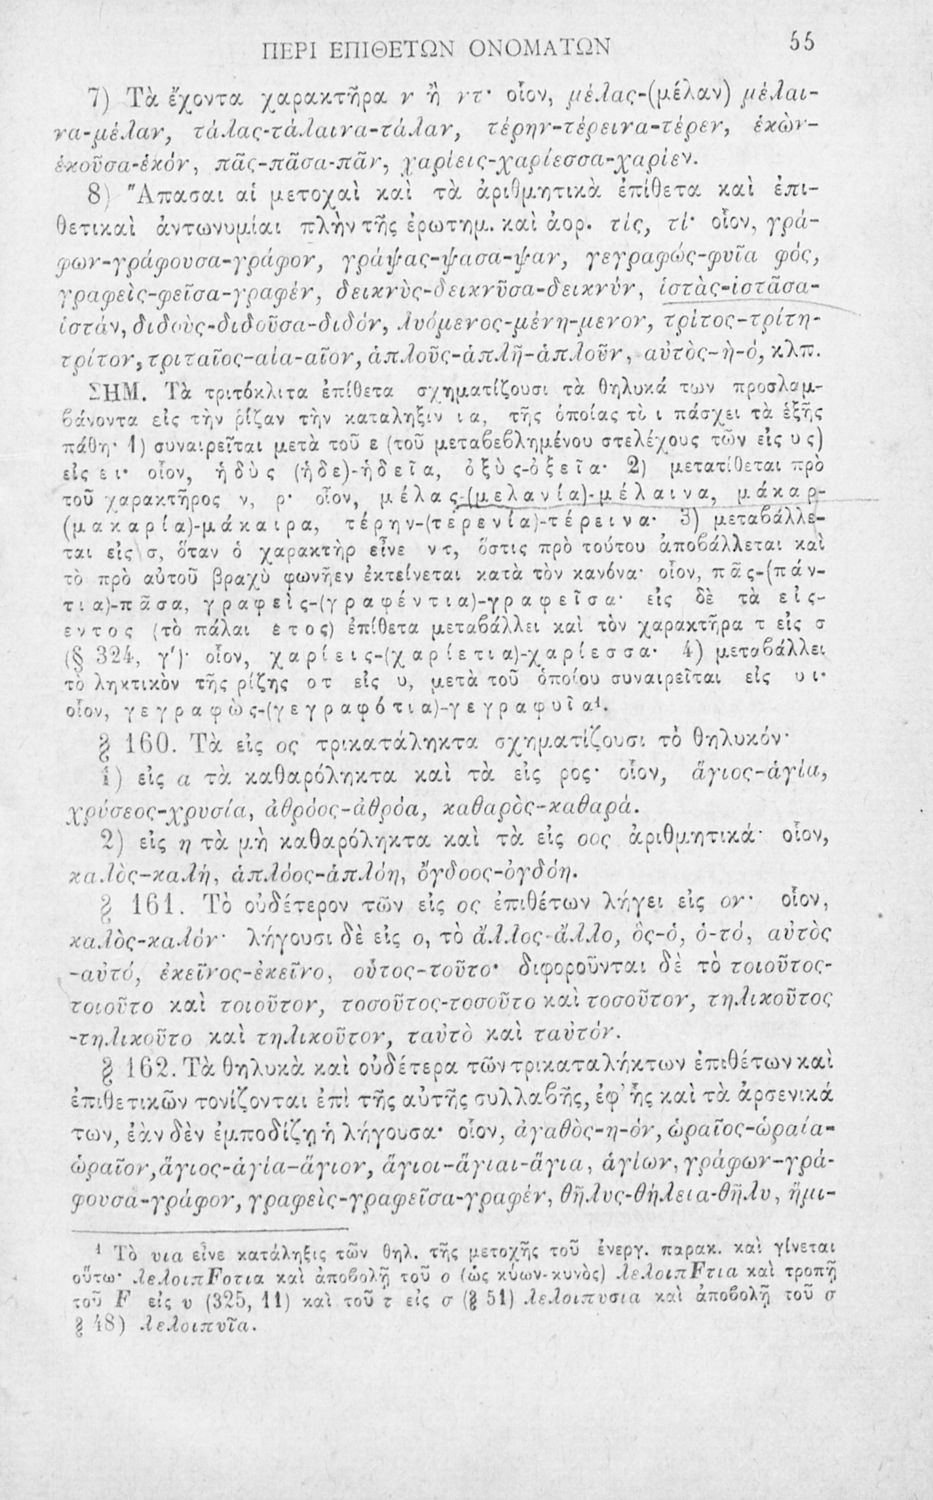 ΠΕΡΙ ΕΠΙΘΕΤΩΝ ΟΝΟΜΑΤΩΝ 55
7) Τὰ ἔχοντα χαρακτῆρα ν ἢ ντ· οἷον, μέλας-(μέλαν) μέλαι-
να-μέλαν, τάλας-τάλαινα-τάλαν, τέρην-τέρεινα-τέρεν, ἑκὼν-
ἑκοῦσα-ἑκόν, πᾶς-πᾶσα-πᾶν, χαρίεις-χαρίεσσα-χαρίεν.
8) Ἅπασαι αἱ μετοχαὶ καὶ τὰ ἀριθμητικὰ ἐπίθετα καὶ ἐπι-
θετικαὶ ἀντωνυμίαι πλὴν τῆς ἐρωτημ. καὶ ἀορ. τίς, τί· οἷον, γρά-
φων-γράφουσα-γράφον, γράψας-ψασα-ψαν, γεγραφώς-φυῖα φός,
γραφεὶς-φεῖσα-γραφέν, δεικνὺς-δεικνῦσα-δεικνύν, ἱστὰς-ἱστᾶσα-
ἱστάν, διδοὺς-διδοῦσα-διδόν, λυόμενος-μένη-μενον, τρίτος-τρίτη-
τρίτον, τριταῖος-αία-αῖον, ἁπλοῦς-ἁπλῆ-ἁπλοῦν, αὐτὸς-ὴ-ό, κλπ.
ΣΗΜ. Τὰ τριτόκλιτα ἐπίθετα σχηματίζουσι τὰ θηλυκά των προσλαμ-
βάνοντα εἰς τὴν ῥίζαν τὴν κατάληξιν ια, τῆς ὁποίας τὸ ι πάσχει τὰ ἑξῆς
πάθη· 1) συναιρεῖται μετὰ τοῦ ε (τοῦ μεταβεβλημένου στελέχους τῶν εἰς υς)
εἰς ει· οἷον, ἡδὺς (ἡδε)-ἡδεῖα, ὀξὺς-ὀξεῖα· 2) μετατίθεται πρὸ
τοῦ χαρακτῆρος ν, ρ· οἷον, μέλας-(μελανία)-μέλαινα, μάκαρ-
(μακαρία)-μάκαιρα, τέρην-(τερενία)-τέρεινα· 3) μεταβάλλε-
ται εἰς σ, ὅταν ὁ χαρακτὴρ εἶνε ντ, ὅστις πρὸ τούτου ἀποβάλλεται καὶ
τὸ πρὸ αὐτοῦ βραχὺ φωνῆεν ἐκτείνεται κατὰ τὸν κανόνα· οἷον, πᾶς-(πάν-
τια)-πᾶσα, γραφεὶς-(γραφέντια)-γραφεῖσα· εἰς δὲ τὰ εις-
εντος (τὸ πάλαι ετος) ἐπίθετα μεταβάλλει καὶ τὸν χαρακτῆρα τ εἰς σ
(§ 324, γ')· οἷον, χαρίεις-(χαρίετια)-χαρίεσσα· 4) μεταβάλλει
τὸ ληκτικὸν τῆς ρίζης οτ εἰς υ, μετὰ τοῦ ὁποίου συναιρεῖται εἰς υι·
οἷον, γεγραφὼς-(γεγραφότια)-γεγραφυῖα¹.
§ 160. Τὰ εἰς ος τρικατάληκτα σχηματίζουσι τὸ θηλυκόν·
1) εἰς α τὰ καθαρόληκτα καὶ τὰ εἰς ρος· οἷον, ἅγιος-ἁγία,
χρύσεος-χρυσία, ἀθρόος-ἀθρόα, καθαρὸς-καθαρά.
2) εἰς η τὰ μὴ καθαρόληκτα καὶ τὰ εἰς οος ἀριθμητικά· οἷον,
καλὸς-καλὴ, ἁπλόος-ἁπλόη, ὄγδοος-ὀγδόη.
§ 161. Τὸ οὐδέτερον τῶν εἰς ος ἐπιθέτων λήγει εἰς ον· οἷον,
καλὸς-καλόν· λήγουσι δὲ εἰς ο, τὸ ἄλλος-ἄλλο, ὃς-ὁ, ὁ-τό, αὐτὸς
-αὐτό, ἐκεῖνος-ἐκεῖνο, οὗτος-τοῦτο· διφοροῦνται δὲ τὸ τοιοῦτος-
τοιοῦτο καὶ τοιοῦτον, τοσοῦτος-τοσοῦτο καὶ τοσοῦτον, τηλικοῦτος
-τηλικοῦτο καὶ τηλικοῦτον, ταὐτὸ καὶ ταὐτόν.
§ 162. Τὰ θηλυκὰ καὶ οὐδέτερα τῶν τρικαταλήκτων ἐπιθέτων καὶ
ἐπιθετικῶν τονίζονται ἐπὶ τῆς αὐτῆς συλλαβῆς, ἐφ' ἧς καὶ τὰ ἀρσενικά
των, ἐὰν δὲν ἐμποδίζῃ ἡ λήγουσα· οἷον, ἀγαθὸς-η-όν, ὡραῖος-ὡραία-
ὡραῖον, ἅγιος-ἁγία-ἅγιον, ἅγιοι-ἅγιαι-ἅγια, ἁγίων, γράφων-γρά-
φουσα-γράφον, γραφεὶς-γραφεῖσα-γραφέν, θῆλυς-θήλεια-θῆλυ, ἥμι-
¹ Τὸ υια εἶνε κατάληξις τῶν θηλ. τῆς μετοχῆς τοῦ ἐνεργ. παρακ. καὶ γίνεται
οὕτω· λελοιπFοτια καὶ ἀποβολῇ τοῦ ο (ὡς κύων-κυνὸς) λελοιπFτια καὶ τροπῇ
τοῦ F εἰς υ (325, 11) καὶ τοῦ τ εἰς σ (§ 51) λελοιπυσια καὶ ἀποβολῇ τοῦ σ
§ 48) λελοιπυῖα.